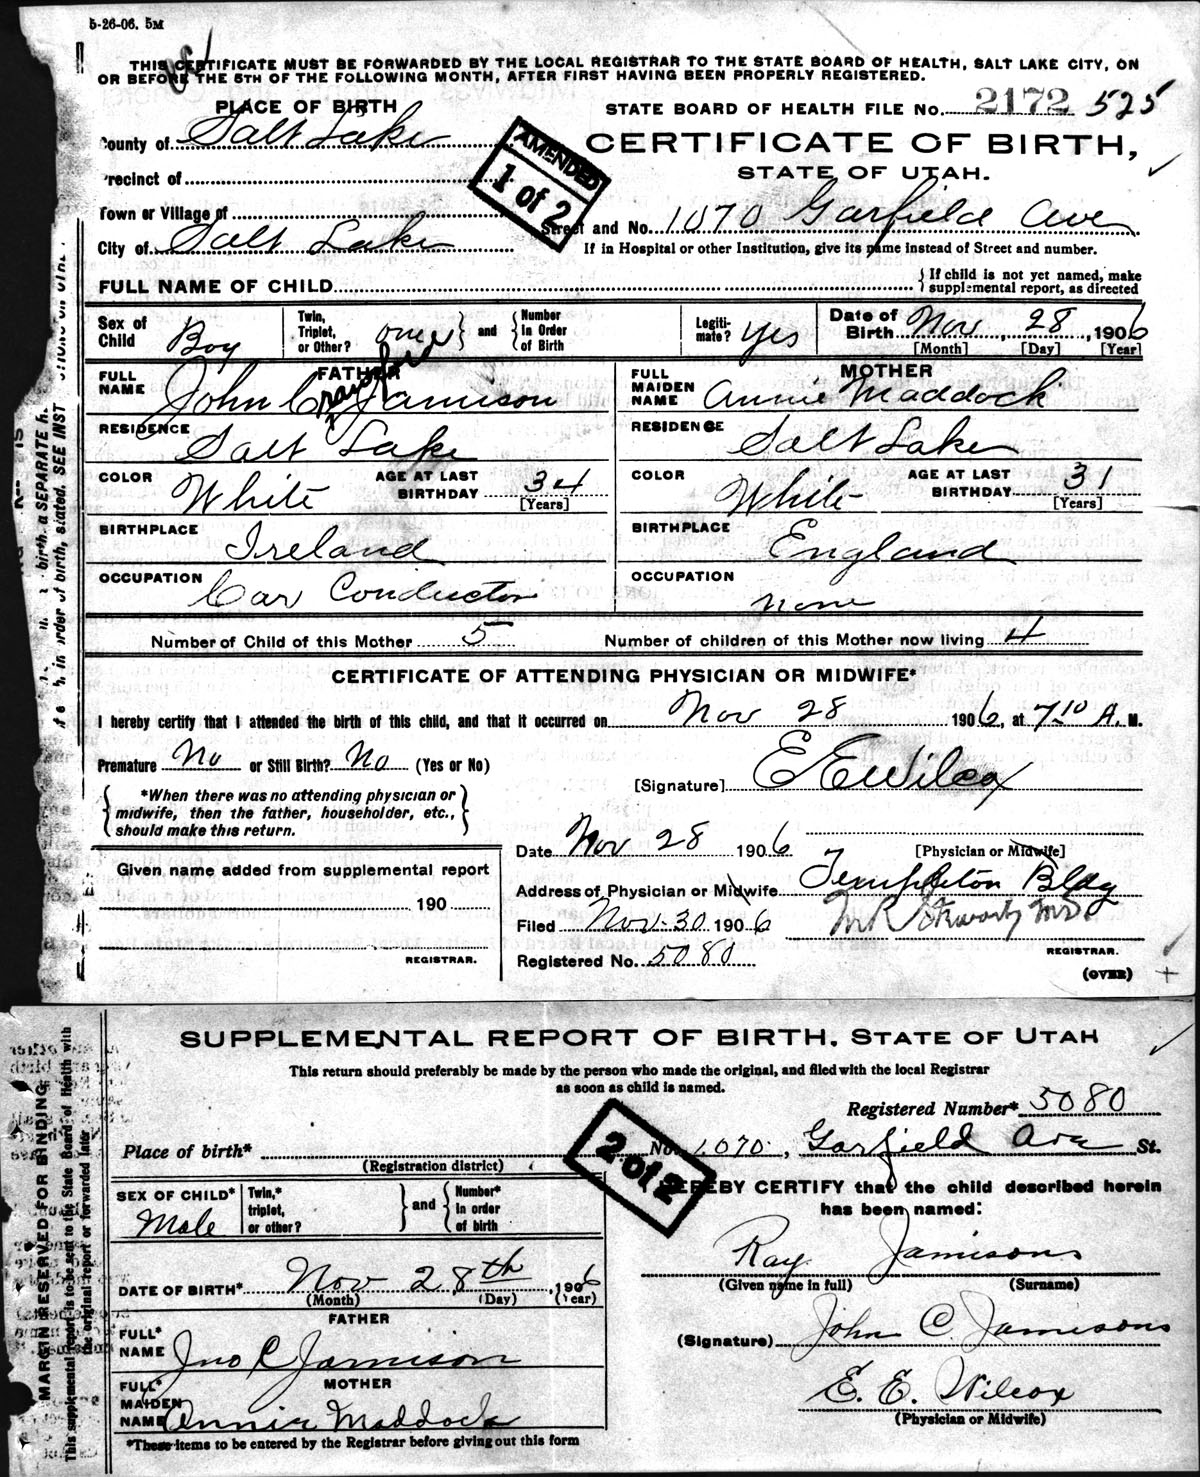 5-26-06. 5M
THIS CERTIFICATE MUST BE FORWARDED BY THE LOCAL REGISTRAR TO THE STATE BOARD OF HEALTH, SALT LAKE CITY, ON
OR BEFORE THE 5TH OF THE FOLLOWING MONTH, AFTER FIRST HAVING BEEN PROPERLY REGISTERED.
PLACE OF BIRTH
STATE BOARD OF HEALTH FILE No. 2172 525
County of Salt Lake
CERTIFICATE OF BIRTH,
STATE OF UTAH.
AMENDED
1 of 2
Precinct of
Town or Village of
Street and No. 1070 Garfield Ave
City of Salt Lake
If in Hospital or other Institution, give its name instead of Street and number.
FULL NAME OF CHILD
If child is not yet named, make
supplemental report, as directed
Sex of Child Boy
Twin, Triplet, or Other? one and Number In Order of Birth
Legitimate? Yes
Date of Birth Nov 28, 1906
[Month] [Day] [Year]
FATHER
FULL NAME John Crawford Jamison
MOTHER
FULL MAIDEN NAME Annie Maddock
RESIDENCE Salt Lake
RESIDENCE Salt Lake
COLOR White AGE AT LAST BIRTHDAY 34 [Years]
COLOR White AGE AT LAST BIRTHDAY 31 [Years]
BIRTHPLACE Ireland
BIRTHPLACE England
OCCUPATION Car Conductor
OCCUPATION none
Number of Child of this Mother 5 Number of children of this Mother now living 4
CERTIFICATE OF ATTENDING PHYSICIAN OR MIDWIFE*
I hereby certify that I attended the birth of this child, and that it occurred on Nov 28 1906, at 7 10 A. M.
Premature No or Still Birth? No (Yes or No)
[Signature] E E Wilcox
*When there was no attending physician or
midwife, then the father, householder, etc.,
should make this return.
Date Nov 28 1906
[Physician or Midwife]
Given name added from supplemental report
190
REGISTRAR.
Address of Physician or Midwife Templeton Bldg
Filed Nov-30 1906
REGISTRAR.
Registered No. 5080
(OVER)
SUPPLEMENTAL REPORT OF BIRTH, STATE OF UTAH
This return should preferably be made by the person who made the original, and filed with the local Registrar
as soon as child is named.
Registered Number* 5080
Place of birth* No. 1070, Garfield Ave St.
(Registration district)
2 of 2
SEX OF CHILD* Male
Twin,* triplet, or other? and Number* In order of birth
HEREBY CERTIFY that the child described herein
has been named:
Ray Jamisons
(Given name in full) (Surname)
DATE OF BIRTH* Nov 28th, 1906
(Month) (Day) (Year)
FATHER
FULL* NAME Jno C Jamison
(Signature) John C. Jamisons
MOTHER
FULL* MAIDEN NAME Annie Maddock
E. E. Wilcox
(Physician or Midwife)
*These items to be entered by the Registrar before giving out this form
MARGIN RESERVED FOR BINDING.
This supplemental report is to be sent to the State Board of Health with
the original report or forwarded later